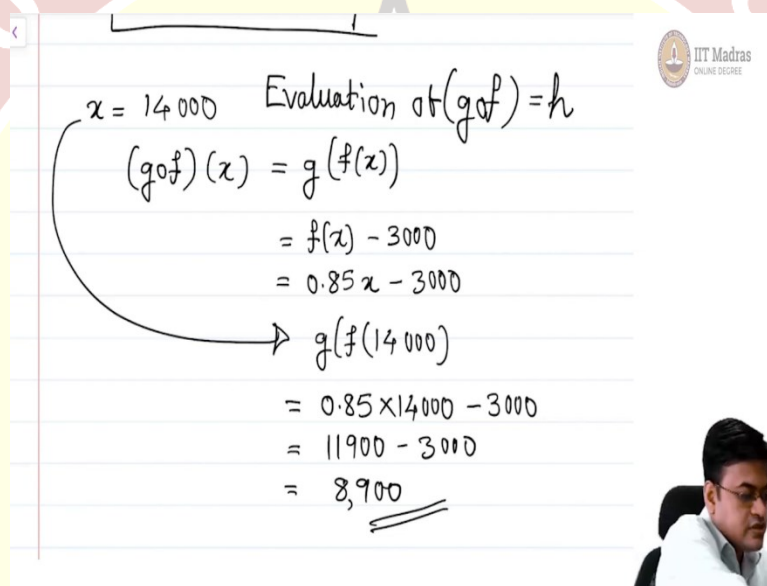 IIT Madras
ONLINE DEGREE
x = 14000 Evaluation of (gof) = h
(gof)(x) = g(f(x))
= f(x) - 3000
= 0.85x - 3000
g(f(14000)
= 0.85×14000 - 3000
= 11900 - 3000
= 8,900